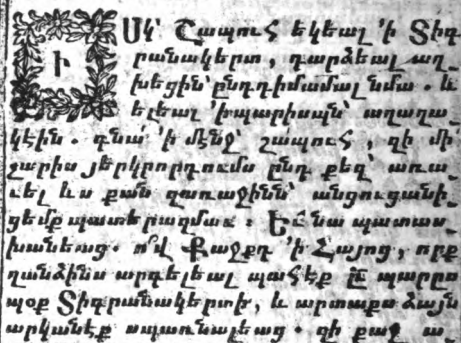 Ի
Սկ՝ Շապուհ եկեալ ՚ի Տիգ
րանակերտ, դարձեալ աղ_
խեցին՝ ընդդիմամալ նմա. և
ելեալ ՚ի պարիսպն՝ աղաղա_
կէին. գնա՛ ՚ի մէնջ՝ շապուհ, զի մի՛
չարիս յերկրորդումս ընդ քեզ՝ առա_
ւել ևս քան զառաջինն՝ անցուցանի_
ցեմք պատերազմաւ: Եւ նա պատաս_
խանեաց. ո՛վ Քաջքդ ՚ի Հայոց, որք
զանձինս արգելեալ պահէք ընդ պարըս
պօք Տիգրանակերտի, և արտաքս ձայն
արկանէք սպառնալեաց. զի քաջ ա_